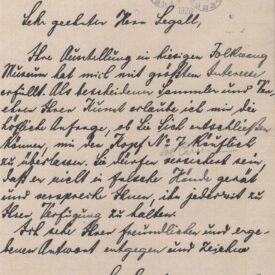 Sehr geehrter Herr Segall.
Ihre Ausstellung im hiesigen Folkwang
Museum hat mich mit größtem Interesse
erfüllt. Als bescheidener Sammler und Ver-
ehrer Ihrer Kunst erlaube ich mir, die
höfliche Anfrage, ob Sie Sich entschließen
können, mir den Kopf No 7 käuflich
zu überlassen. Sie dürfen versichert sein,
daß er nicht in falsche Hände gerät
und verspreche Ihnen, ihn jederzeit zu
Ihrer Verfügung zu halten.
Ich sehe Ihrer freundlichen und erge-
benen Antwort entgegen und zeichne